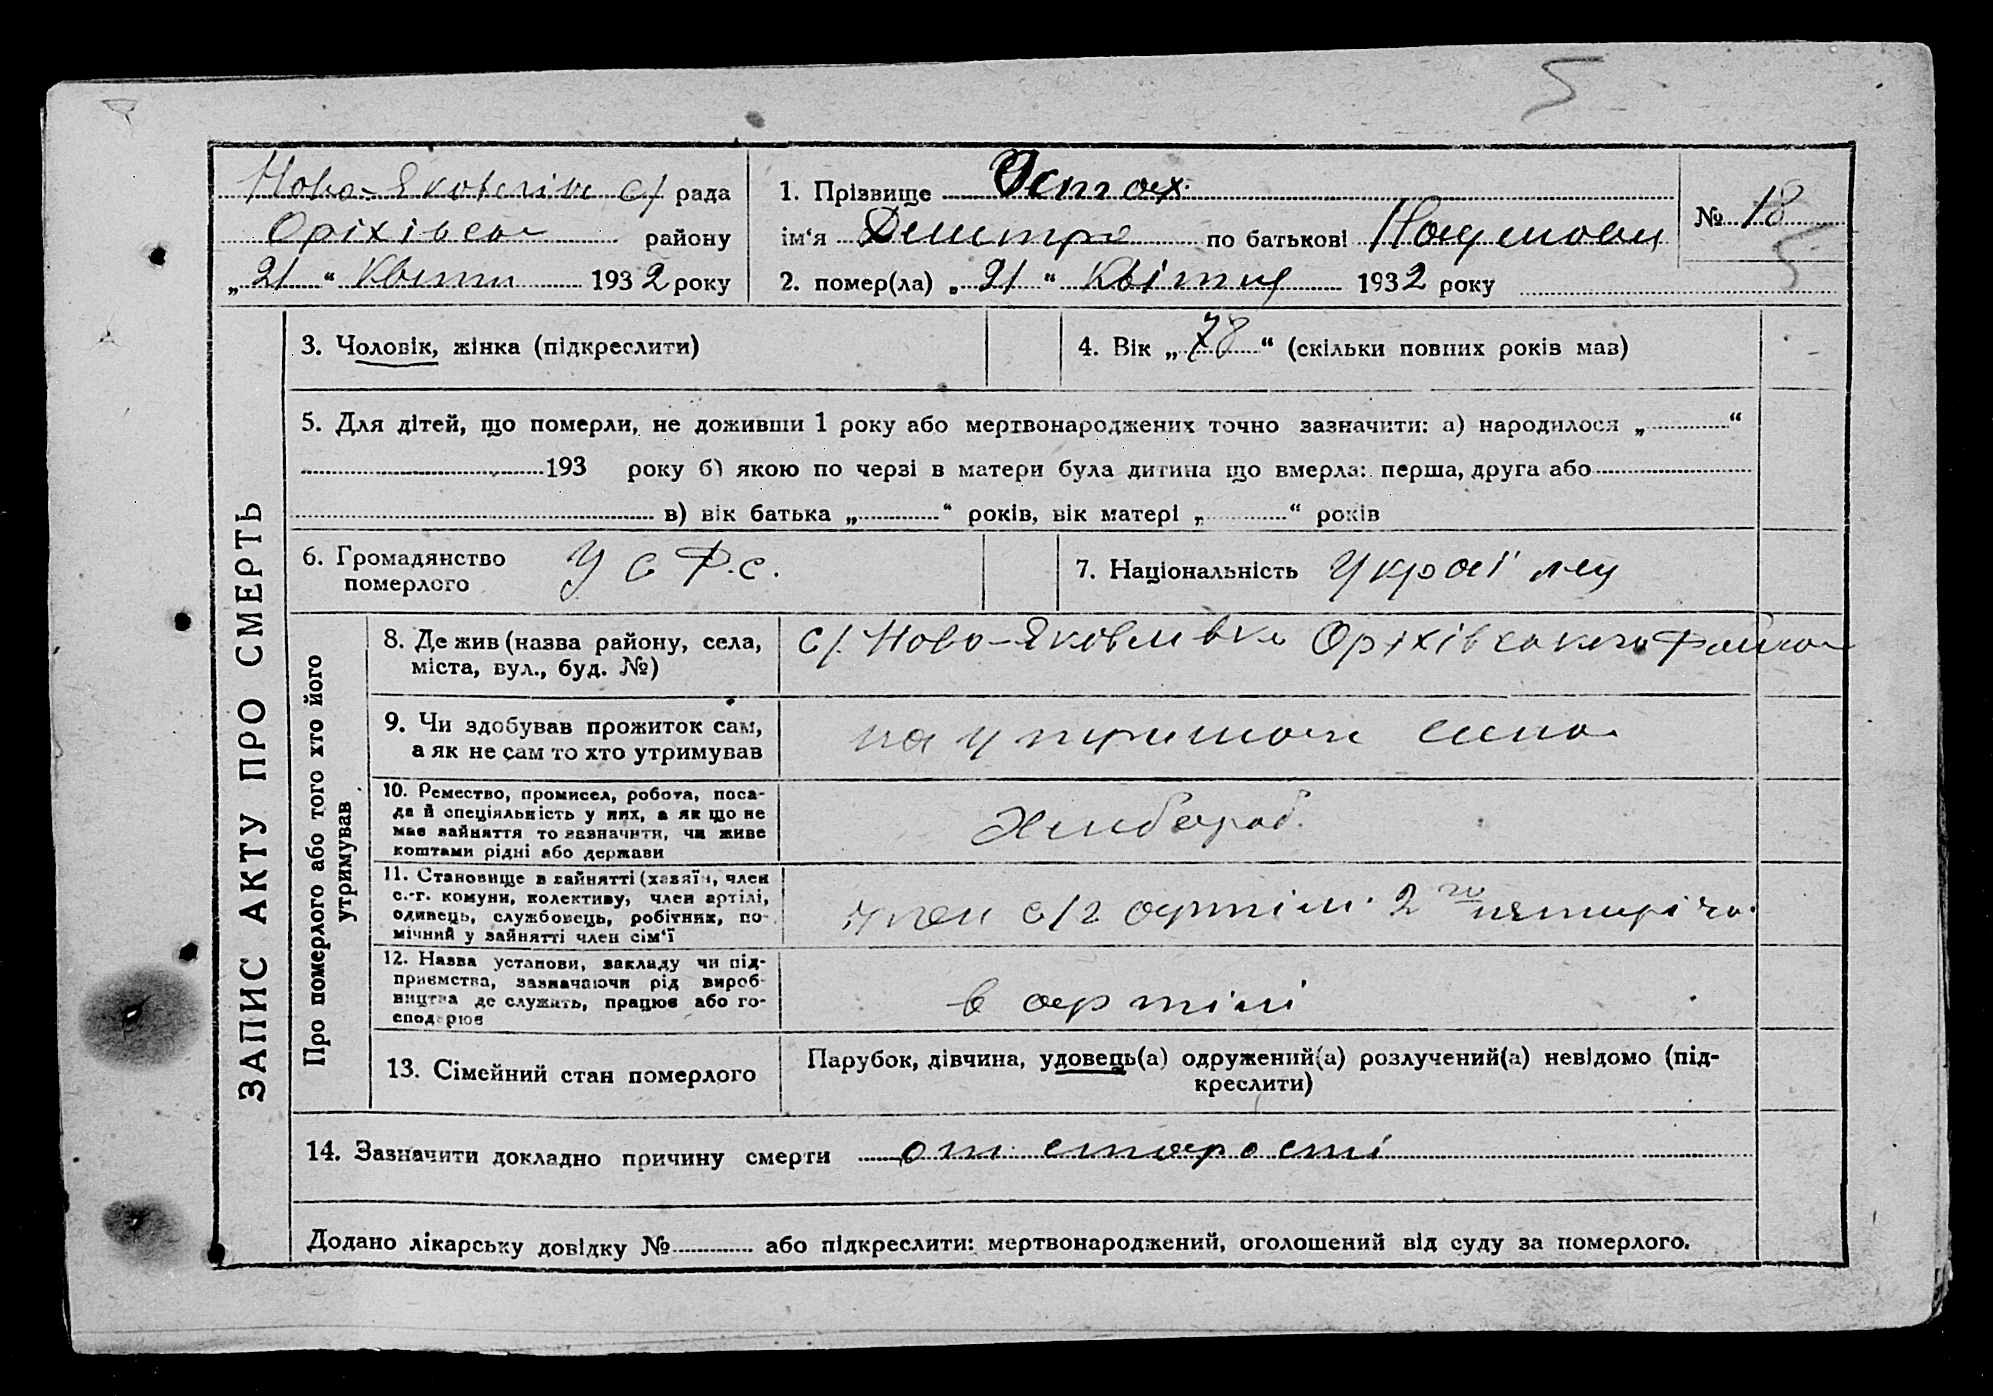 5
Ново- с/ рада
Оріхівськ району
„21“ Квітн 1932 року
1. Прізвище Остах.
ім‘я Дмитро по батькові Наумович
2. помер(ла) „21“ Квітня 1932 року
№ 18
5
ЗАПИС АКТУ ПРО СМЕРТЬ
3. Чоловік, жінка (підкреслити)
4. Вік „78“ (скільки повних років мав)
5. Для дітей, що померли, не доживши 1 року або мертвонароджених точно зазначити: а) народилося „ “
193 року б) якою по черзі в матери була дитина що вмерла: перша, друга або
в) вік батька „ “ років, вік матері „ “ років
6. Громадянство
померлого
У С Р.С.
7. Національність Украї нец
Про померлого або того хто його
утримував
8. Де жив (назва району, села,
міста, вул., буд. №)
с/. Ново-Яковливка Оріхівського району
9. Чи здобував прожиток сам,
а як не сам то хто утримував
на утриман сина
10. Ремество, промисел, робота, поса-
да й спеціяльність у них, а як що не
має зайняття то зазначити, чи живе
коштами рідні або держави
Хлібороб.
11. Становище в зайнятті (хазяїн, член
с.-г. комуни, колективу, член артілі,
одинець, службовець, робітник, по-
мічний у зайнятті член сім‘ї
член с/г артіли. 2 го пятиріча.
12. Назва установи, закладу чи під-
приємства, зазначаючи рід вироб-
ництва де служить, працює або го-
сподарює
в артілі
13. Сімейний стан померлого
Парубок, дівчина, удовець(а) одружений(а) розлучений(а) невідомо (під-
креслити)
14. Зазначити докладно причину смерти от старості
Додано лікарську довідку № або підкреслити: мертвонароджений, оголошений від суду за померлого.